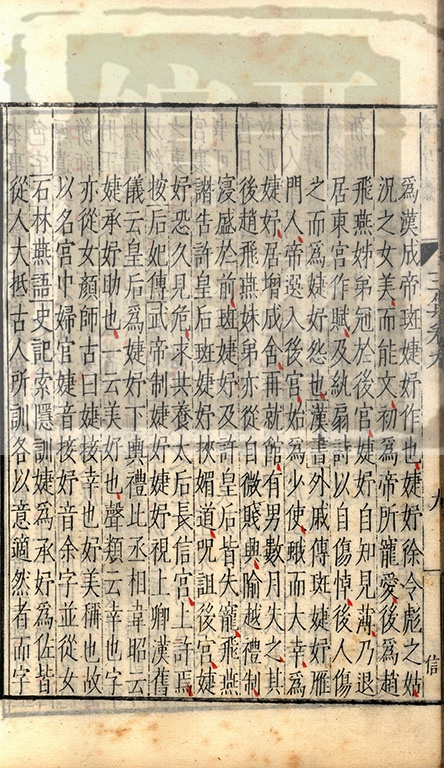 爲漢成帝斑婕妤作也婕妤徐令彪之姑
況之女美而能文初爲帝所寵愛後爲趙
飛燕姊弟冠於後宮婕妤自知見薄乃退
居東宮作賦及紈扇詩以自傷悼後人傷
之而爲婕妤怨也漢書外戚傳斑婕妤雁
門人帝選入後宮始爲少使蛾而大幸爲
婕妤居增成舍再就館有男數月失之其
後趙飛燕姊弟亦從自微賤興隃越禮制
寖盛於前斑婕妤及許皇后皆失寵飛燕
譖告許皇后斑婕妤挾媚道呪詛後宮婕
妤恐久見危求共養太后長信宮上許焉
按后妃傳武帝制婕妤婕妤視上卿漢舊
儀云皇后爲婕妤下輿禮比丞相韋昭云
婕承妤助也一云美好也聲類云幸也字
亦從女顏師古曰婕接幸也妤美稱也故
以名宮中婦官婕音接妤音余字並從女
石林燕語史記索隱訓婕爲承妤爲佐皆
從人大抵古人所訓各以意適然者而字
信